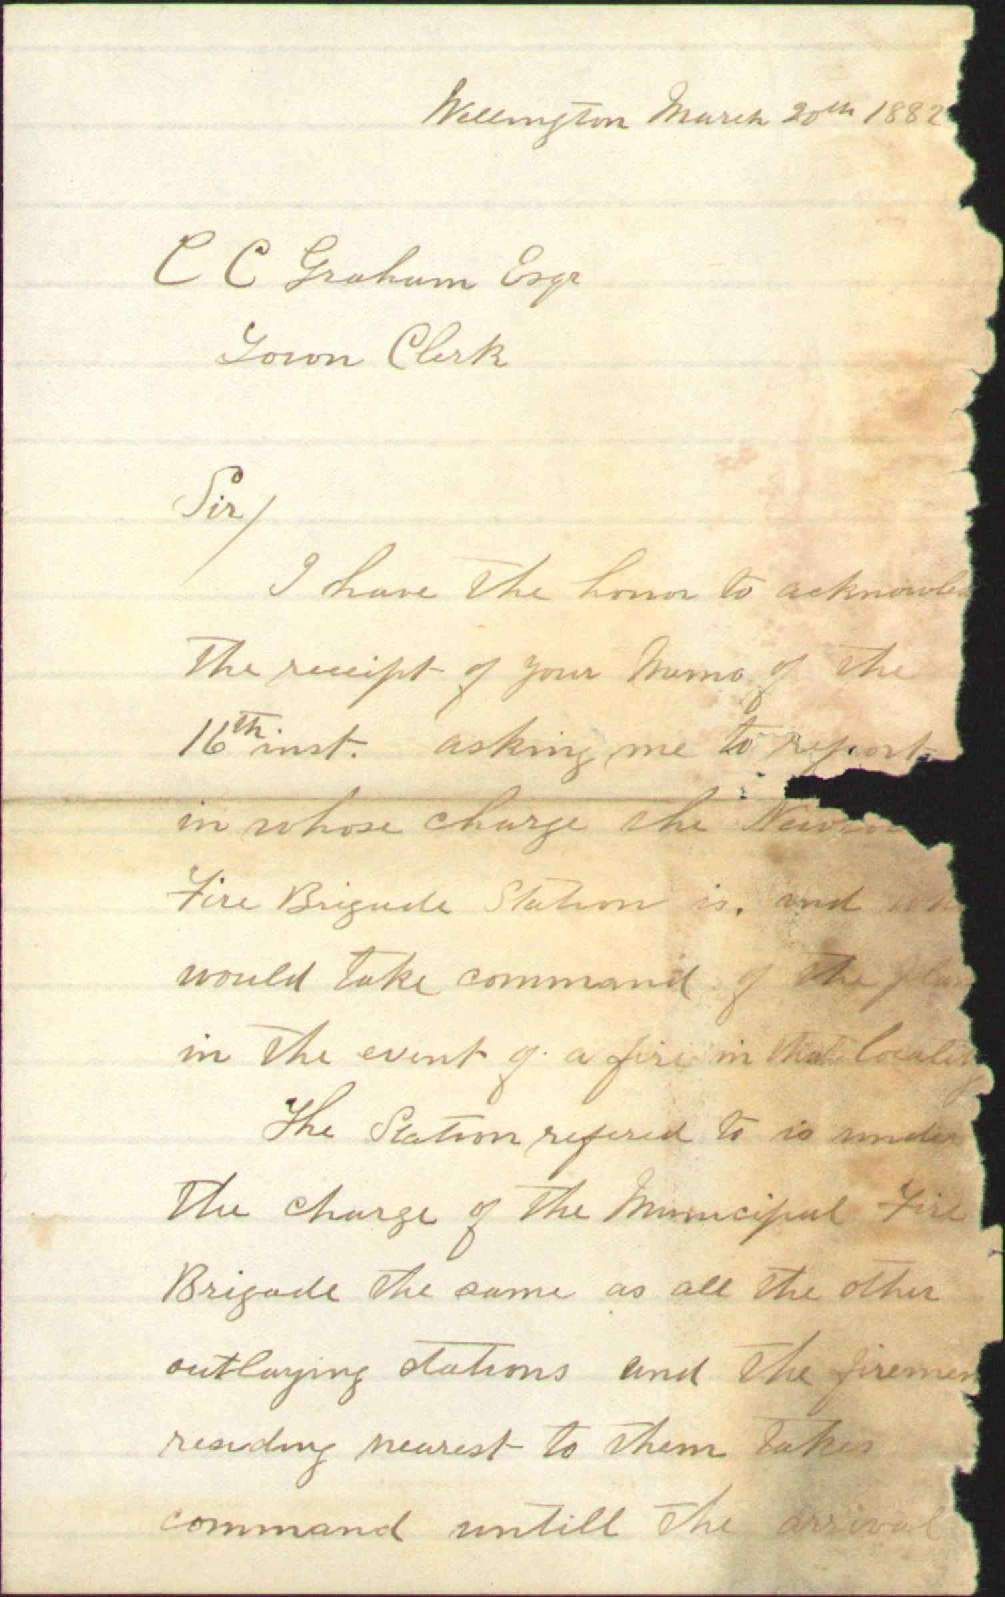 Wellington March 20th 1882
C C Graham Esqr
Town Clerk
Sir/
I have the honor to
the receipt of your Memo of the
16th inst. asking me to report
in whose charge the
Fire Brigade Station is. and
would take command of the
in the event of a fire in that locality
The Station refered to is under
the charge of the Municipal Fire
Brigade the same as all the other
outlaying stations and the firemen
residing nearest to them takes
command untill the arrival